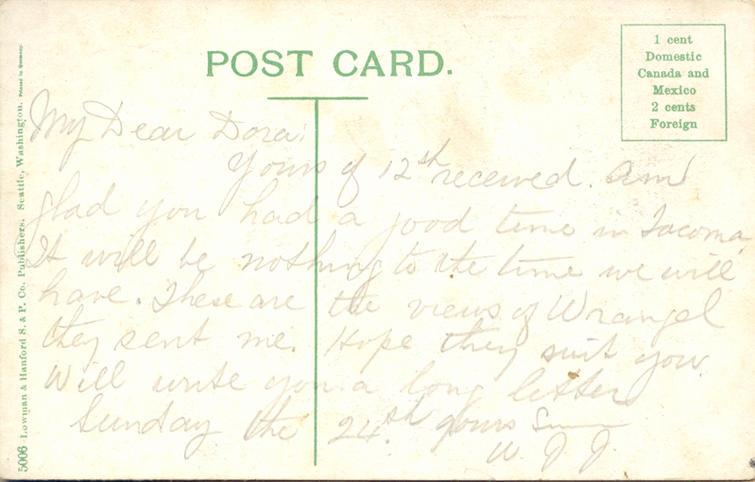 POST CARD.
1 cent
Domestic
Canada and
Mexico
2 cents
Foreign
My Dear Dora:
Yours of 12th received. am
glad you had a good time in Tacoma.
It will be nothing to the time we will
have. These are the views of Wrangel
they sent me. Hope they suit you.
Will write you a long letter
Sunday the 24th. yours
W. J. J.
5006 Lowman & Hanford S. & P. Co. Publishers. Seattle, Washington. Printed in Germany.